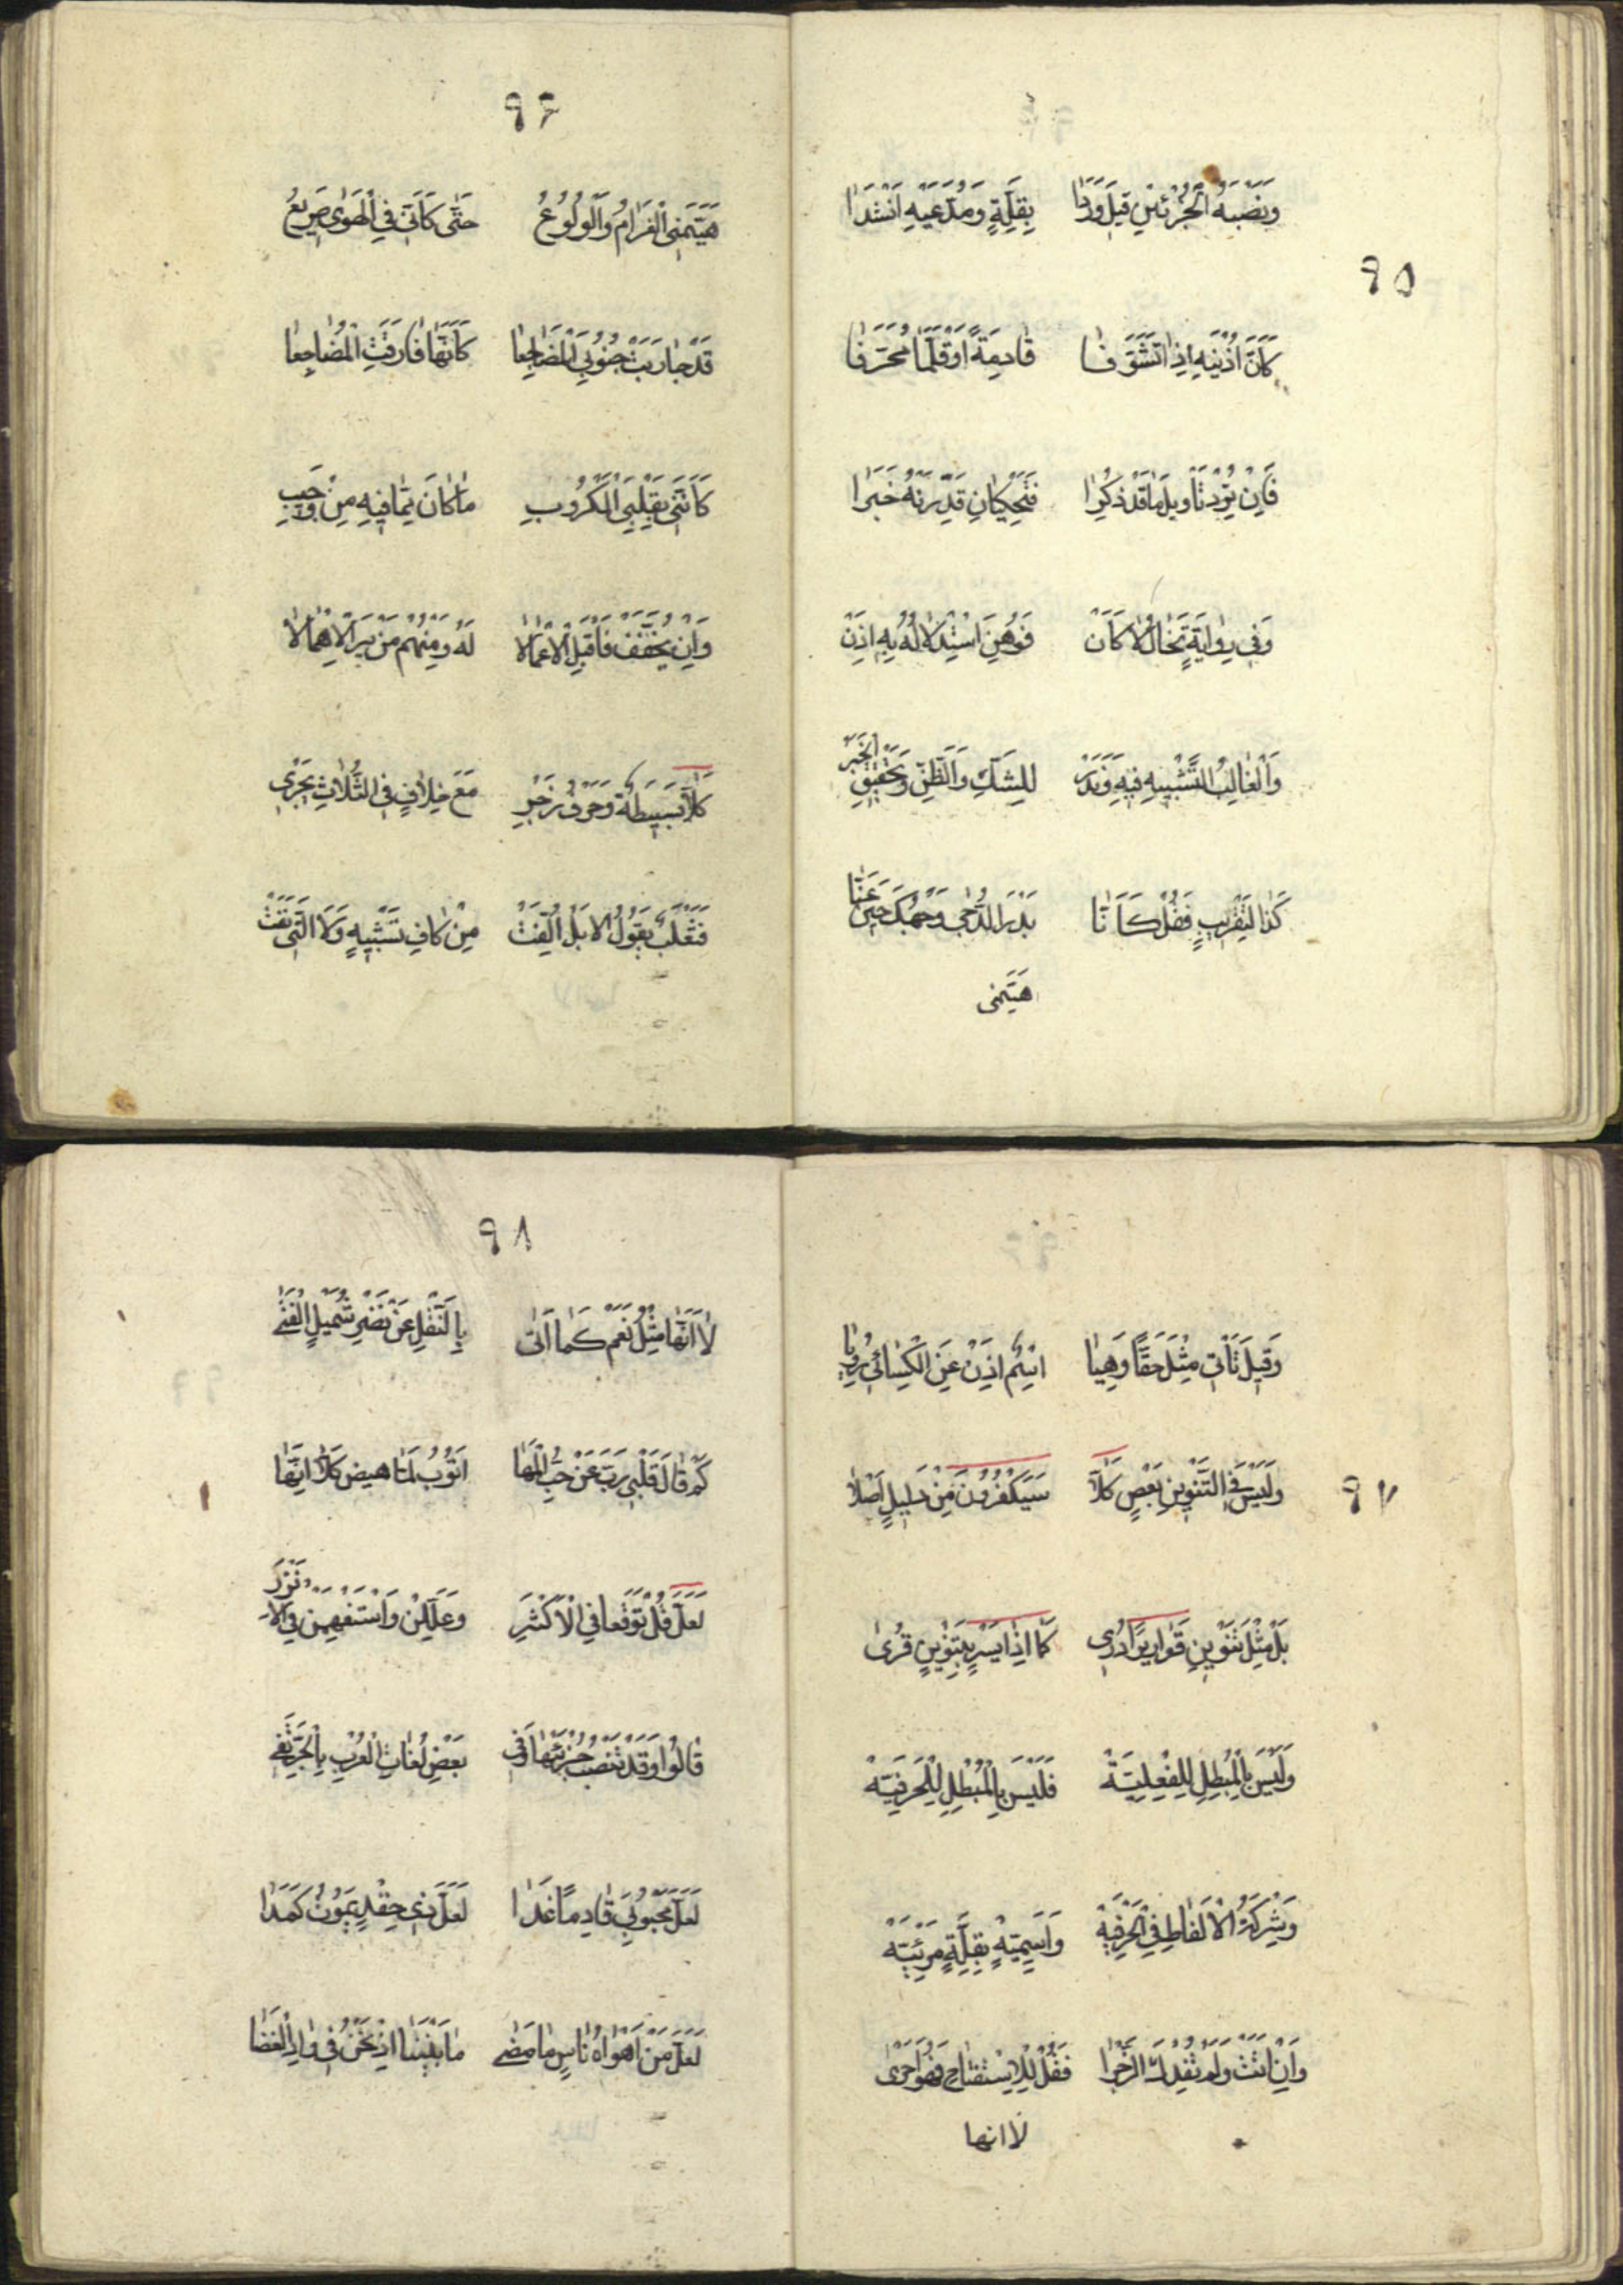 ٩٥
وَنَصْبُهُ الْجُزْئَيْنِ قِيلَ وَرَدَا بِقِلَّةٍ وَمُدَّعِيهِ اَنْشَدَا
كَأَنَّ اُذْنَيْهِ اِذَا تَشَوَّفَا قَادِمَةً اَوْ قَلَمًا مُحَرَّفَا
فَاِنْ يُؤَدْ تَأْوِيلُ مَا قَدْ ذُكِرَا فَتَحْكِيَانِ قَدِّرَنْهُ خَبَرَا
وَفِي رِوَايَةٍ تَخَالُ لَا كَأَنْ فَوَهِّنَ اسْتِدْلَالَهُ بِهِ اِذَنْ
وَالْغَالِبُ التَّشْبِيهُ فِيهِ وَنَدَرْ لِلشَّكِّ وَالظَّنِّ وَتَحْقِيقِ الْخَبَرْ
كَذَا لِتَقْرِيبٍ فَقُلْ كَأَنَّا بَدْرَ الدُّجَى وَجْهُكَ حِينَ عَنَّا
هيتمنى
٩٦
هَيَّمَنِي الْغَرَامُ وَالْوُلُوعُ حَتَّى كَأَنِّي فِي الْهَوَى صَرِيعُ
قَدْ حَارَبَتْ جُنُوبِيَ الْمَضَاجِعَا كَأَنَّهَا فَارَقَتِ الْمَضَاجِعَا
كَأَنَّنِي بِقَلْبِيَ الْكَرُوبِ مَا كَانَ مِمَّا فِيهِ مِنْ وَجِيبِ
وَاِنْ يُخَفَّفْ فَاقْبَلِ الْاِعْمَالَا لَهُ وَمِنْهُمْ مَنْ يَرَ الْاِهْمَالَا
كَلَّا بَسِيطَةٌ وَحَرْفُ زَجْرِ مَعَ خِلَافٍ فِي الثَّلَاثِ يَجْرِى
فَثَعْلَبٌ يَقُولُ لَا بَلْ اُلِّفَتْ مِنْ كَافِ تَشْبِيهٍ وَلَا الَّتِي نَفَتْ
٩٧
وَقِيلَ تَأْتِي مِثْلَ حَقًّا وَهِيَا اسْمٌ اِذَنْ عَنِ الْكِسَائِي رُوِيَا
وَلَيْسَ فِي التَّنْوِينِ بَعْضٍ كَلَّا سَيَكْفُرُونَ مِنْ دَلِيلٍ اَصْلَا
بَلْ مِثْلُ تَنْوِينِ قَوَارِيرًا دُرِى كَمَا اِذَا يَسْرِ بِتَنْوِينٍ قُرِى
وَلَيْسَ بِالْمُبْطِلِ لِلْفِعْلِيَّةْ فَلَيْسَ بِالْمُبْطِلِ لِلْحَرْفِيَّةْ
وَشِرْكَةُ الْاَلْفَاظِ فِي الْحَرْفِيَّةْ وَاسْمِيَّةٍ بِقِلَّةٍ مَرْئِيَّةْ
وَاِنْ اَتَتْ وَلَمْ تُفِدْكَ الزَّجْرَا فَقُلْ لِلِاسْتِفْتَاحِ فَهُوَ اَحْرَى
لا انها
٩٨
لَا اَنَّهَا مِثْلُ نَعَمْ كَمَا اَتَى بِالنَّقْلِ عَنْ نَضْرِ شُمَيْلِ الْفَتَى
كَمْ قَالَ قَلْبِي رَبِّ عَنْ حُبٍّ لَهَا اَتُوبُ لَمَّا هِيضَ كَلَّا اِنَّهَا
لَعَلَّ قُلْ تَوَقُّعًا فِي الْاَكْثَرِ وَعَلِّلَنْ وَاسْتَفْهِمَنْ فِي الْاَنْزَرِ
قَالُوا وَقَدْ تَنْصِبُ جُزْئَيْهَا وَفِي بَعْضِ لُغَاتِ الْعُرْبِ بِالْجَرِّ تَفِي
لَعَلَّ مَحْبُوبِيَ قَادِمًا غَدَا لَعَلَّ ذِي حِقْدٍ يَمُوتُ كَمَدَا
لَعَلَّ مَنْ اَهْوَاهُ نَاسٍ مَا مَضَى مَا بَيْنَنَا اِذْ نَحْنُ فِي وَادِ الْغَضَا